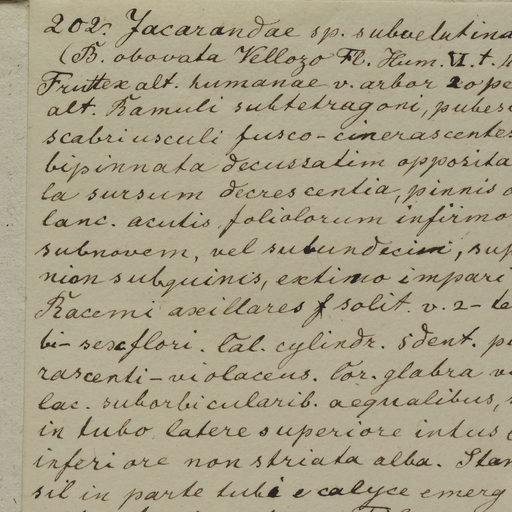 202. Jacarandae sp. subvelutina
(B. obovata Vellozo Fl. Flum. VI. t.
Frutex alt. humanae v. arbor 20 pe
alt. Ramuli subtetragoni, pubes
scabriusculi fusco-cinerascentes
bipinnata decussatim opposita
la sursum decrescentia, pinnis
lanc. acutis, foliolorum infimo
subnovem, vel subundecim, sup
nion subquinis, extimo impari
Racemi axillares f solit. v. 2-te
bi-sexflori. Cal. cylindr. 5dent. p
rascenti-violaceus. Cor. glabra v
lac. suborbicularib. aequalibus,
in tubo latere superiore intus
inferiore non striata alba. Stam
sil in parte tubi e calyce emerg